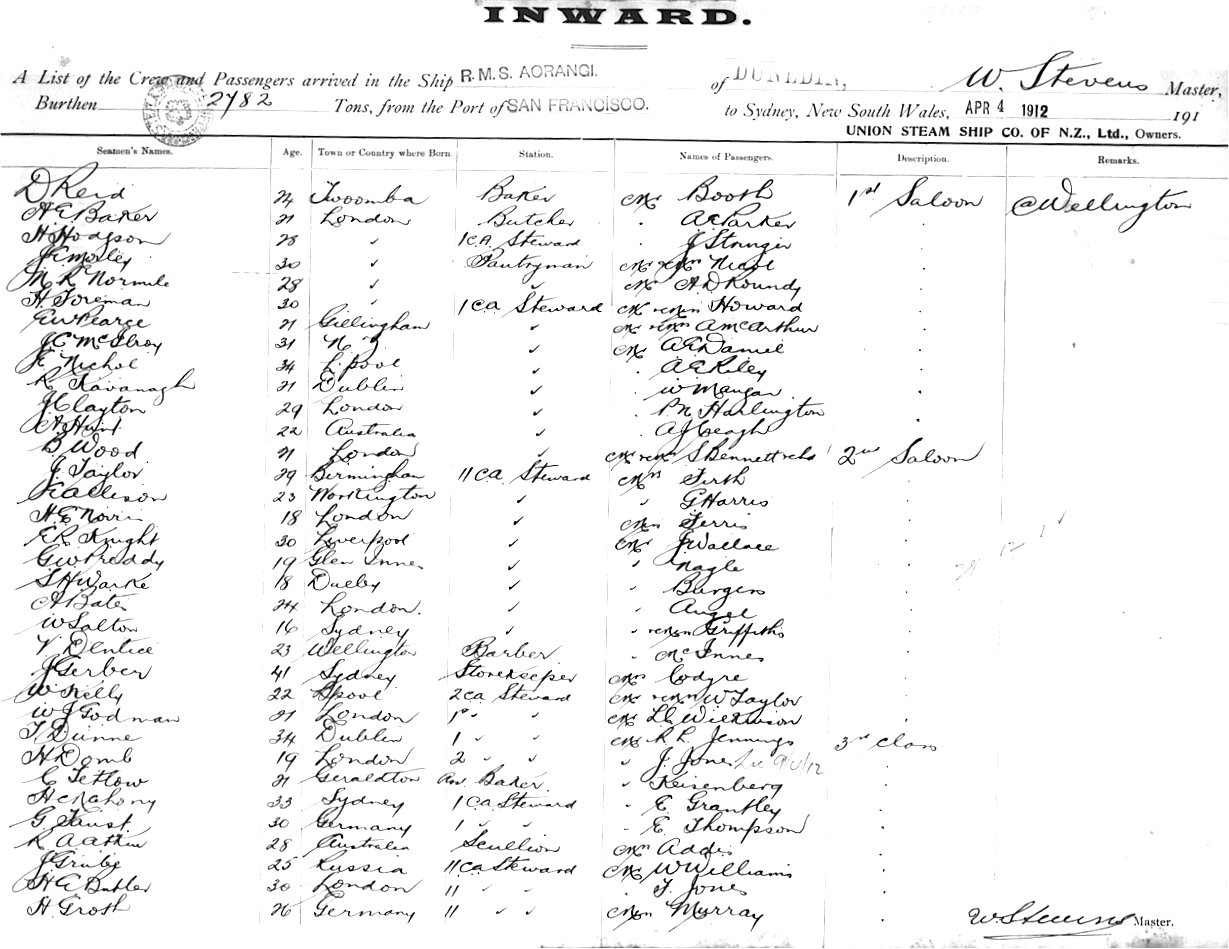 INWARD.
A List of the Crew and Passengers arrived in the Ship R.M.S. AORANGI. of DUNEDIN, W. Stevens Master,
Burthen 2782 Tons, from the Port of SAN FRANCISCO. to Sydney, New South Wales, APR 4 1912 191
UNION STEAM SHIP CO. OF N.Z., Ltd., Owners.
Seamen's Names. Age. Town or Country where Born. Station. Names of Passengers. Description. Remarks.
D Reid 24 Twoomba Baker Mr Booth 1st Saloon Wellington
A E Baker 21 London Butcher " A E Parker
H Hodgson 28 " 1 CA. Steward " J Stringer
J E Mosley 30 " Pantryman Mr Nicol
M R Normile 28 " " Mr A D Roundy
H Foreman 30 " 1 ca Steward Mr Howard
E W Pearge 21 Gillingham " Mr A McArthur
J C McIlroy 31 N Z " Mr A E Daniel
Nichol 34 L'pool " " A E Riley
R Kavanagh 21 Dublin " " W Mangan
J Clayton 29 London " " Harlington
A Hunt 22 Australia " " A J Keagh
B Wood 21 London " S Bennett 2nd Saloon
J Taylor 29 Birmingham 11 ca Steward Mrs Firth
Allison 23 Workington " " G Harris
H E Norri 18 London " Mr Ferris
E R Knight 30 Liverpool " Mr J Wallace
G W Preddy 19 Glen Innes " " Nagle
S H Warke 18 " " Burgess
A Bate 24 London. " " Angel
W Salton 16 Sydney " " Griffiths
V Dentice 23 Wellington Barber " McInnes
J Gerber 41 Sydney Storekeeper Mr
W Kelly 22 L'pool 2 ca Steward Mr W Taylor
W J Godman 21 London 1st " " Mr L C Wilkinson
T Dunne 34 Dublin 1 " " Mr R L Jennings 3rd Class
H Domb 19 London 2 " " " J. Jones
C Tetlow 21 Geraldton Baker. " Keisenberg
H C Mahony 33 Sydney 1 ca Steward " E Grantley
G Faust 30 Germany 1 " " " E. Thompson
R A Atkin 28 Australia Scullion Mr Addis
J Grube 25 Russia 11 ca Steward Mr W Williams
H E Butler 30 London 11 " " " T. Jones
H Groth 26 Germany 11 " " Murray
W. Stevens Master.